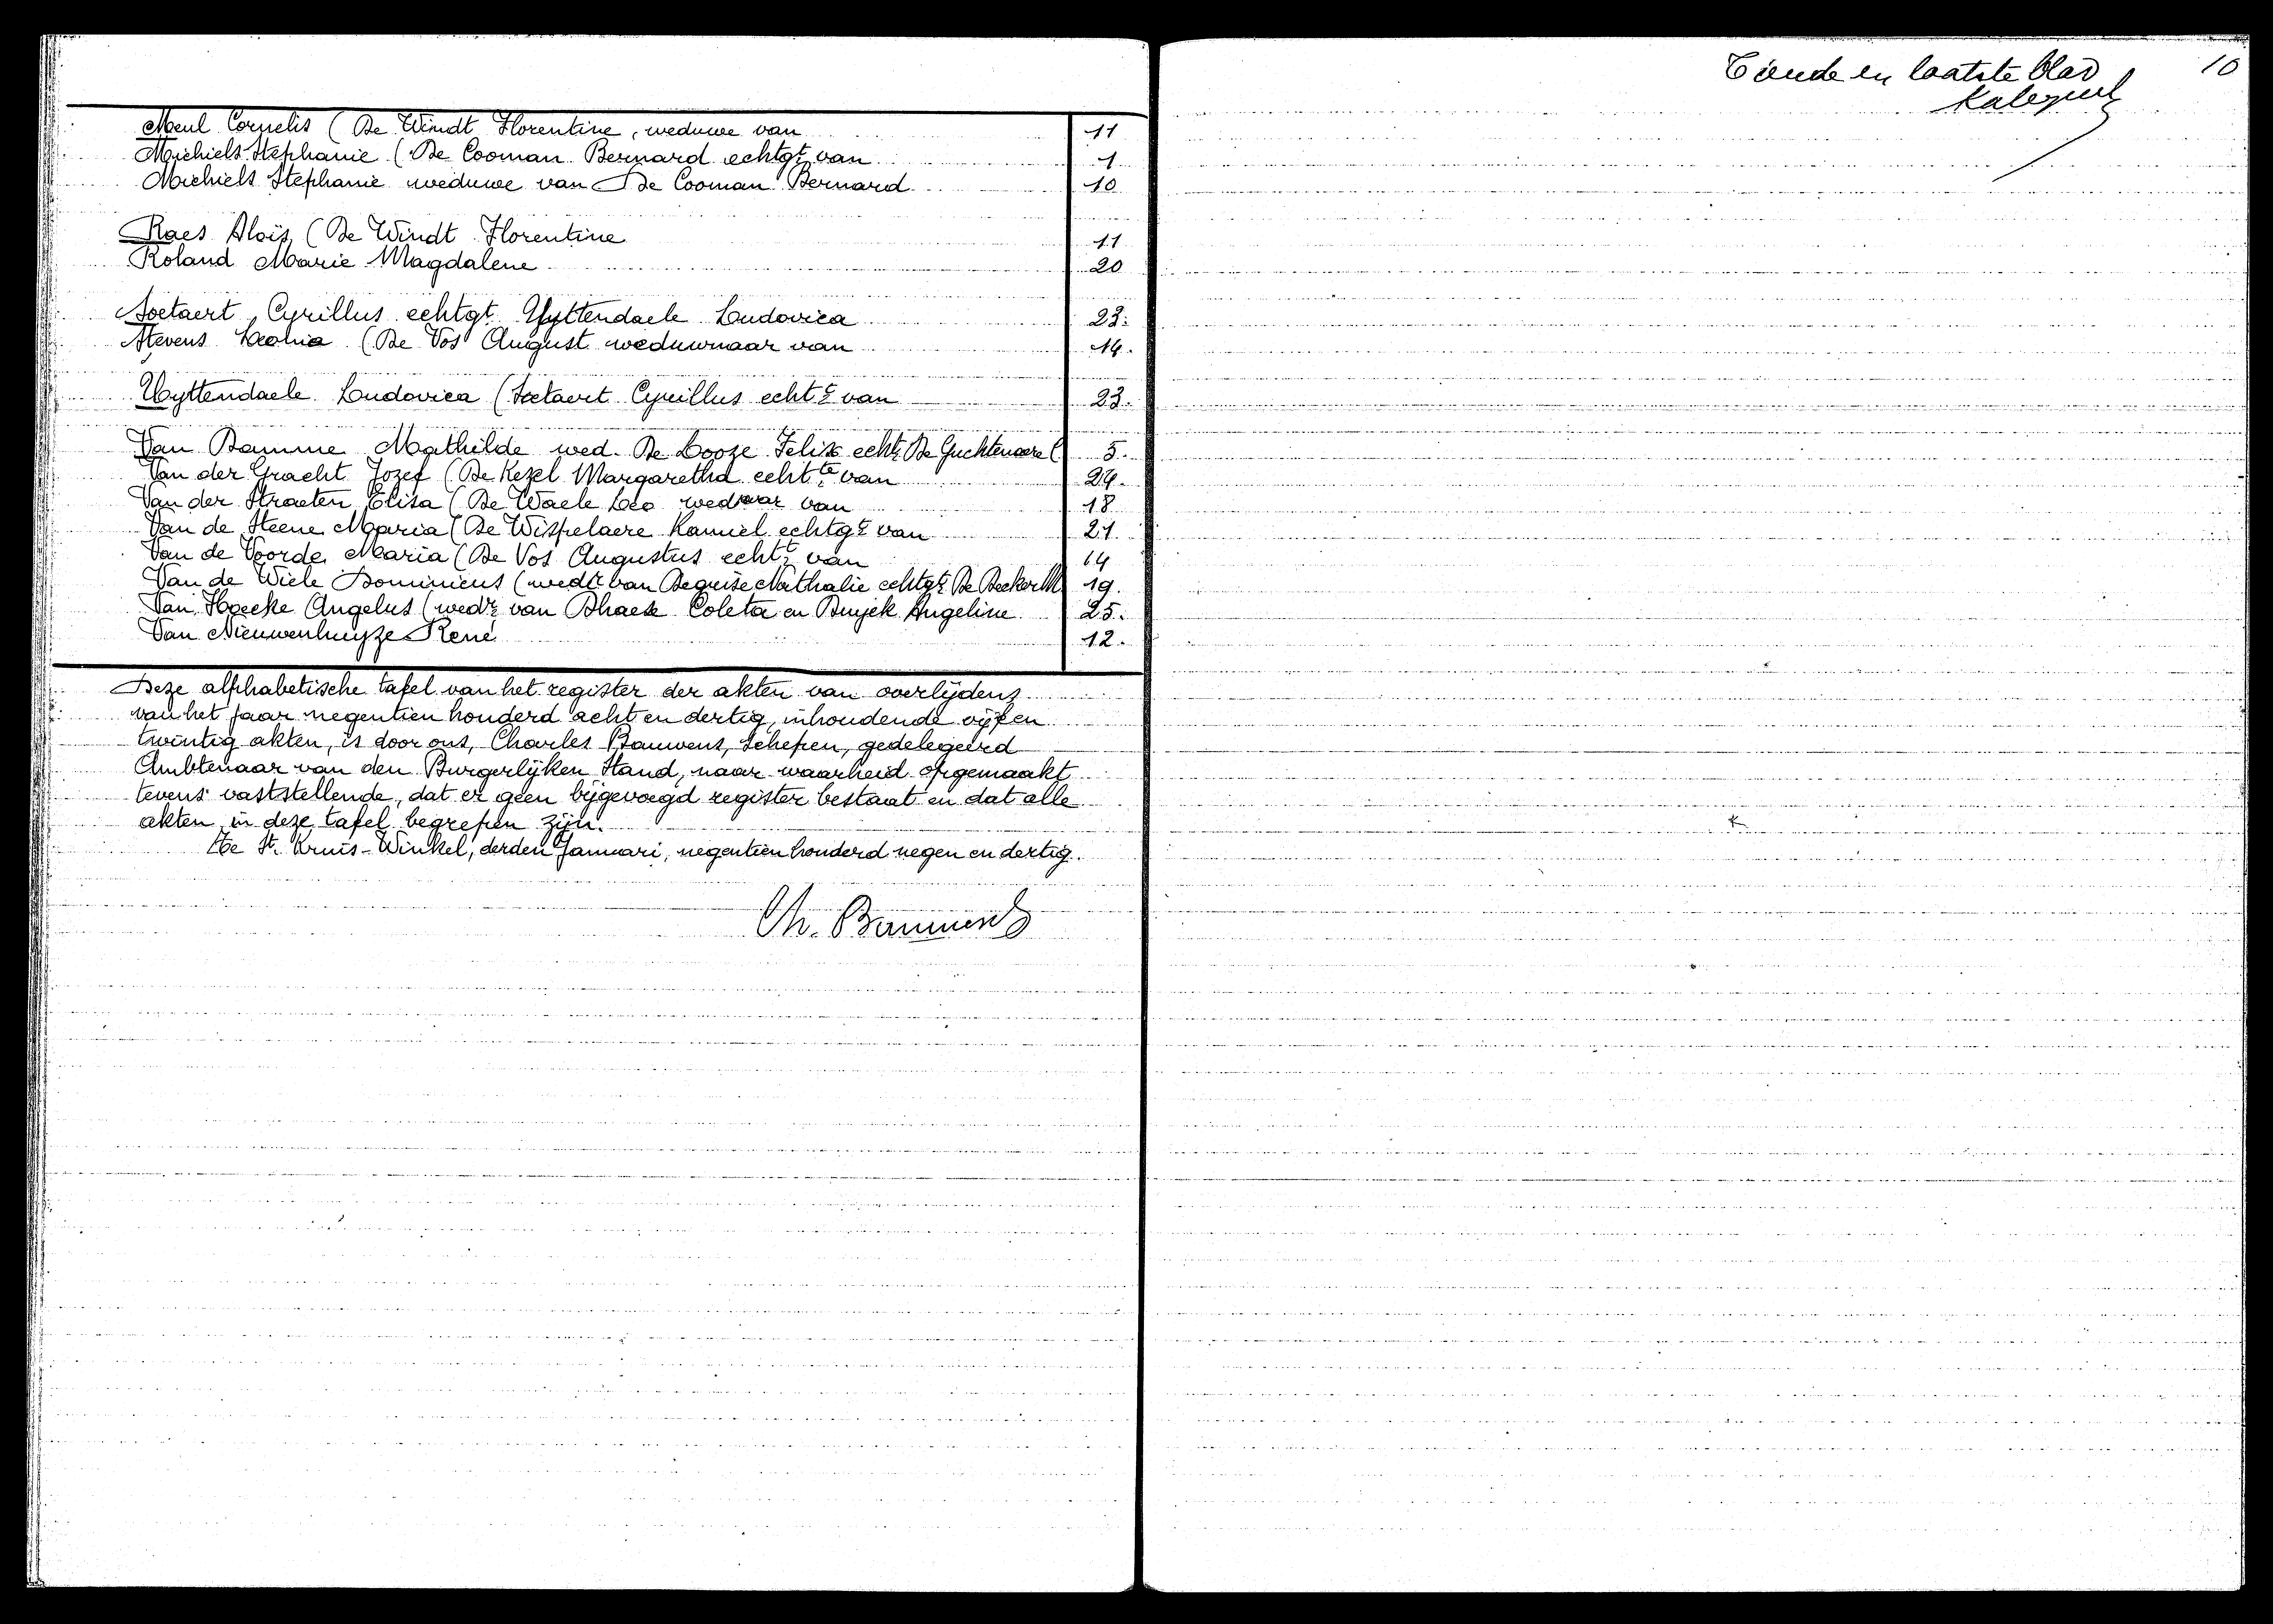 Meul Cornelis (De Windt Florentine, weduwe van 11
Michiels Stephanie (De Cooman Bernard echtgt van 1
Michiels Stephanie weduwe van De Cooman Bernard 10
Raes Aloïs (De Windt Florentine 11
Roland Marie Magdalene 20
Soetaert Cyrillus echtgt Uyttendaele Ludovica 23.
Stevens Leonia (De Vos August weduwnaar van 14.
Uyttendaele Ludovica (Soetaert Cyrillus echt.e van 23.
Van Damme Mathilde wed. De Looze Felix echt. De Guchtenaere ( 5.
Van der Gracht Jozef (De Kezel Margaretha echt.te van 24.
Van der Straeten Elisa (De Waele Leo wednaar van 18
Van de Steene Maria (De Wispelaere Kamiel echtg.t van 21
Van de Voorde Maria (De Vos Augustus echt.t van 14
Van de Wiele Dominicus (wedr van Beguise Nathalie echtgt De Becker M 19.
Van Hoecke Angelus (wedr van Dhaese Coleta en Buyck Angeline 25.
Van Nieuwenhuyze René 12.
Deze alphabetische tafel van het register der akten van overlijdens
van het jaar negentien honderd acht en dertig, inhoudende vijf en
twintig akten, is door ons, Charles Bauwens, Schepen, gedelegeerd
Ambtenaar van den Burgerlijken Stand, naar waarheid opgemaakt
tevens vaststellende, dat er geen bijgevoegd register bestaat en dat alle
akten in deze tafel begrepen zijn.
Te St. Kruis-Winkel, derden Januari, negentien honderd negen en dertig.
Ch. Bauwens
Tiende en laatste blad 10